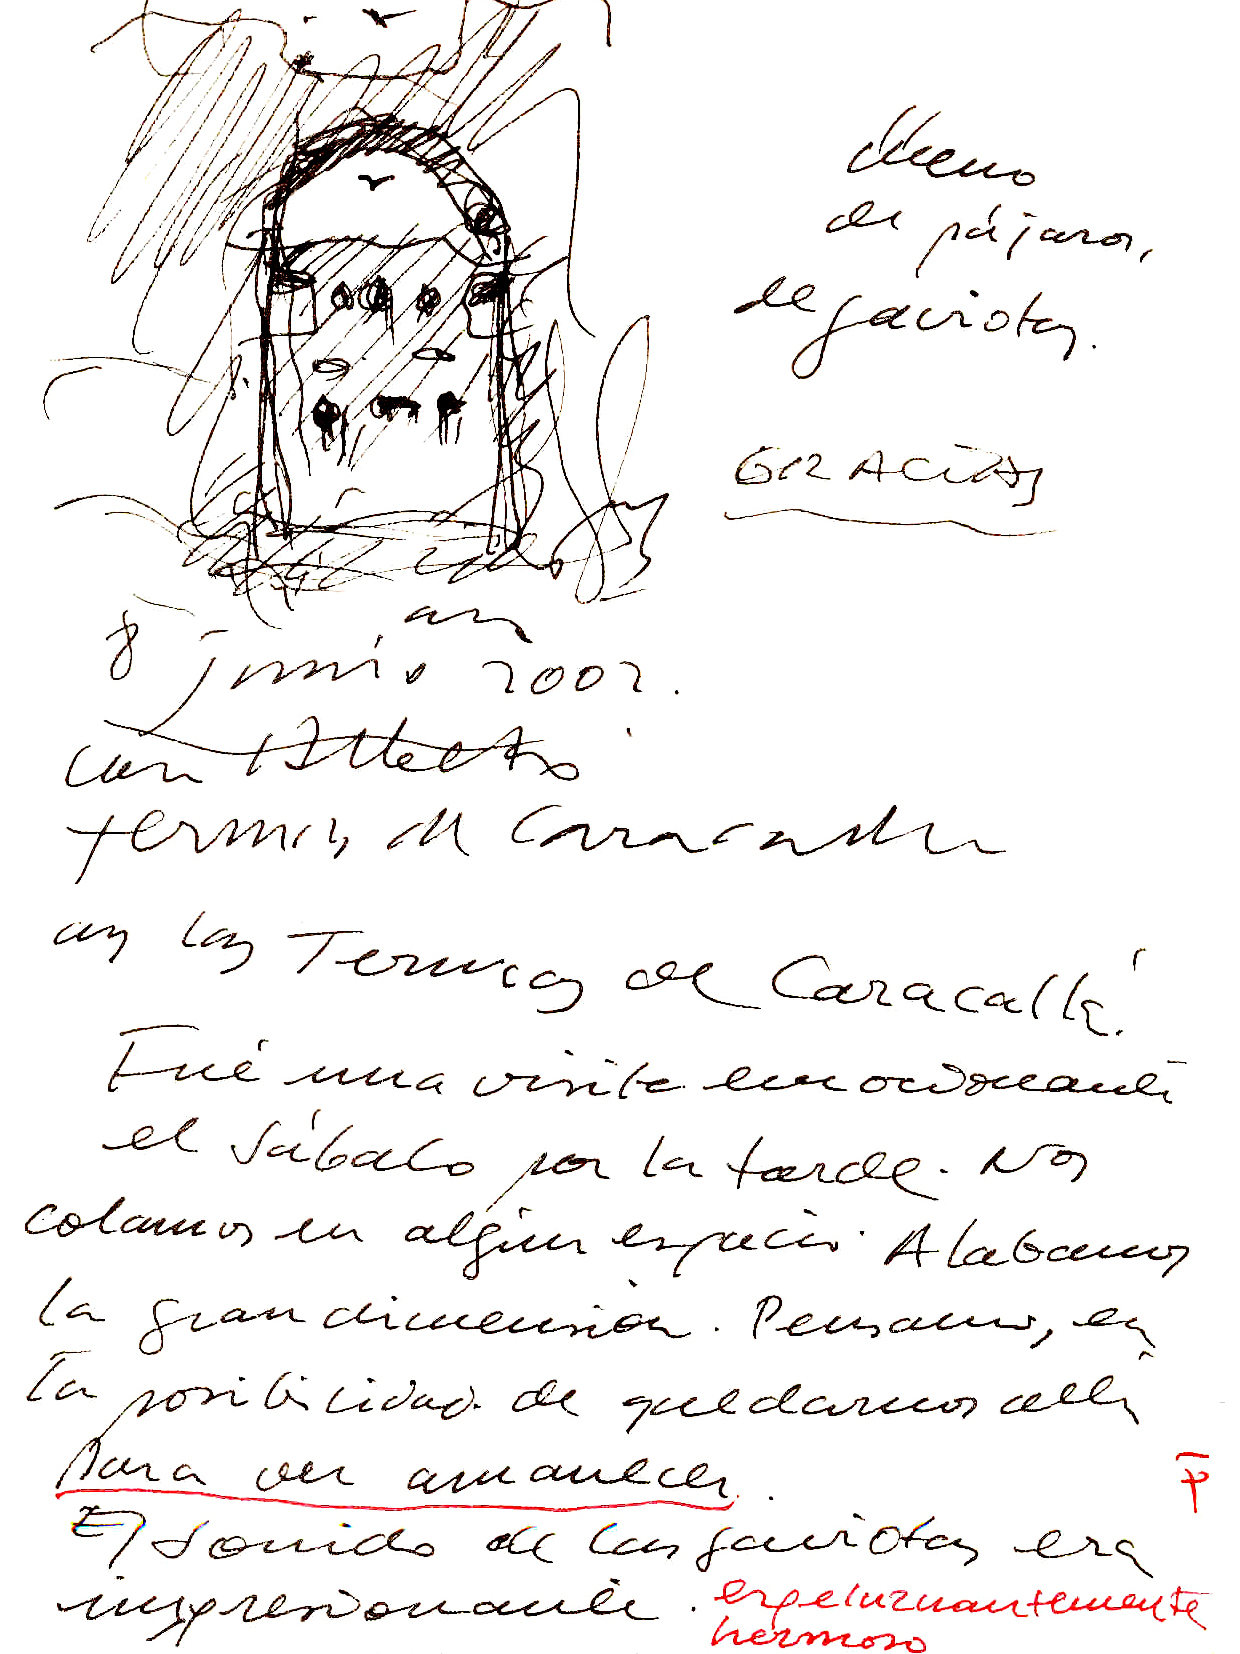 lleno
de pájaros,
de gaviotas.
GRACIAS
8 junio 2002.
con Alberto
termas de Caracalla
en las Termas de Caracalla.
Fué una visita emocionante
el sábado por la tarde. Nos
colamos en algún espacio. Alabamos
la gran dimensión. Pensamos, en
la posibilidad de quedarnos allí
para ver amanecer.
El sonido de las gaviotas era
impresionante. espeluznantemente
hermoso